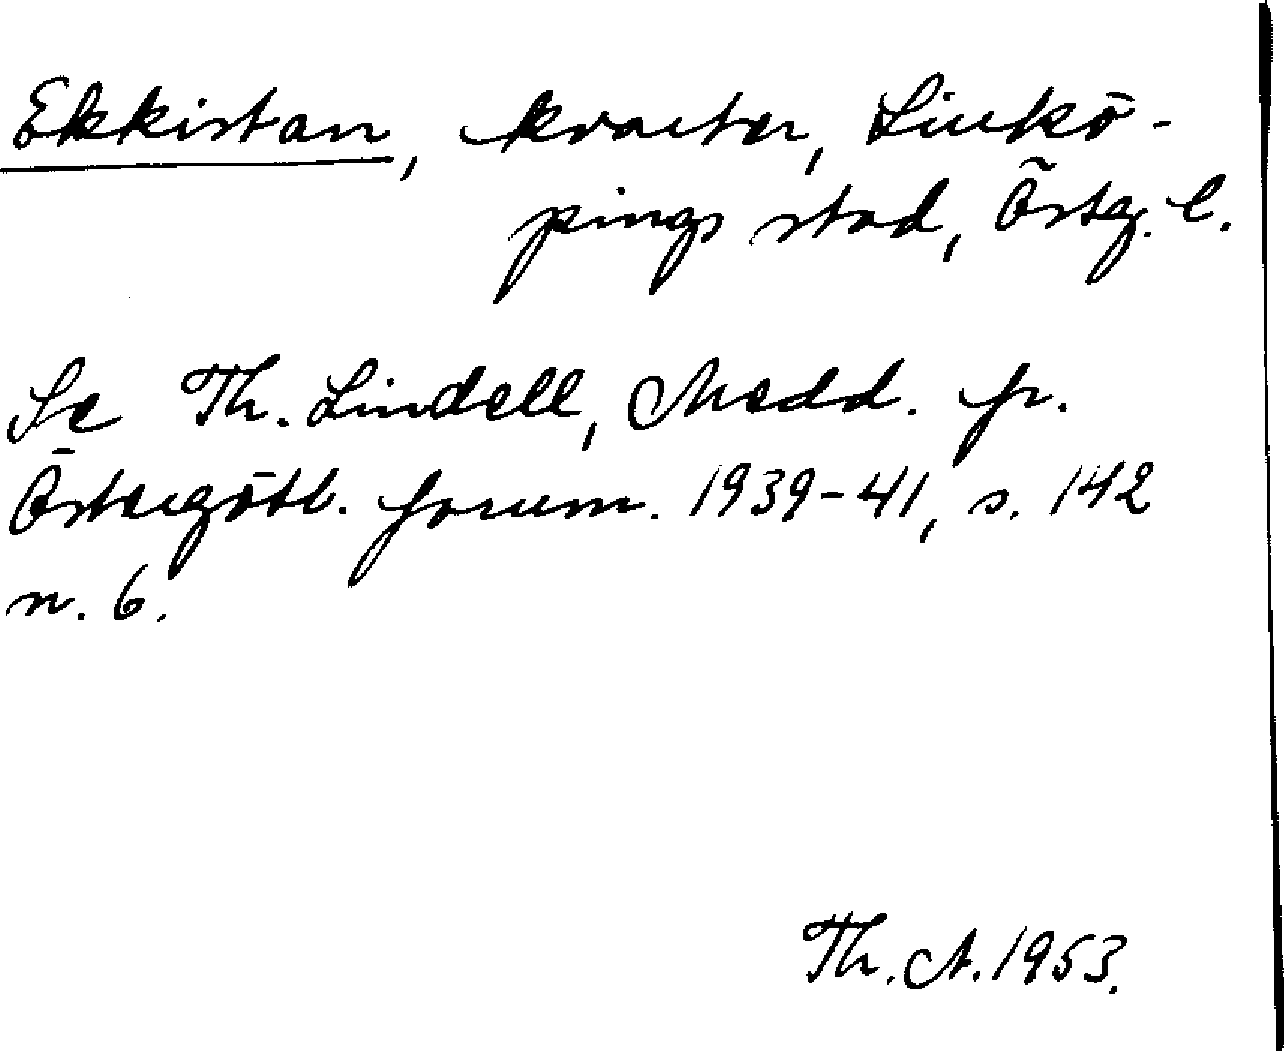 Ekkistan, kvarter, Linkö-
pings stad, Östg. l.
Se Th. Lindell, Medd. fr.
Östergötl. fornm. 1939-41, s. 142
n. 6.
Th. A. 1953.